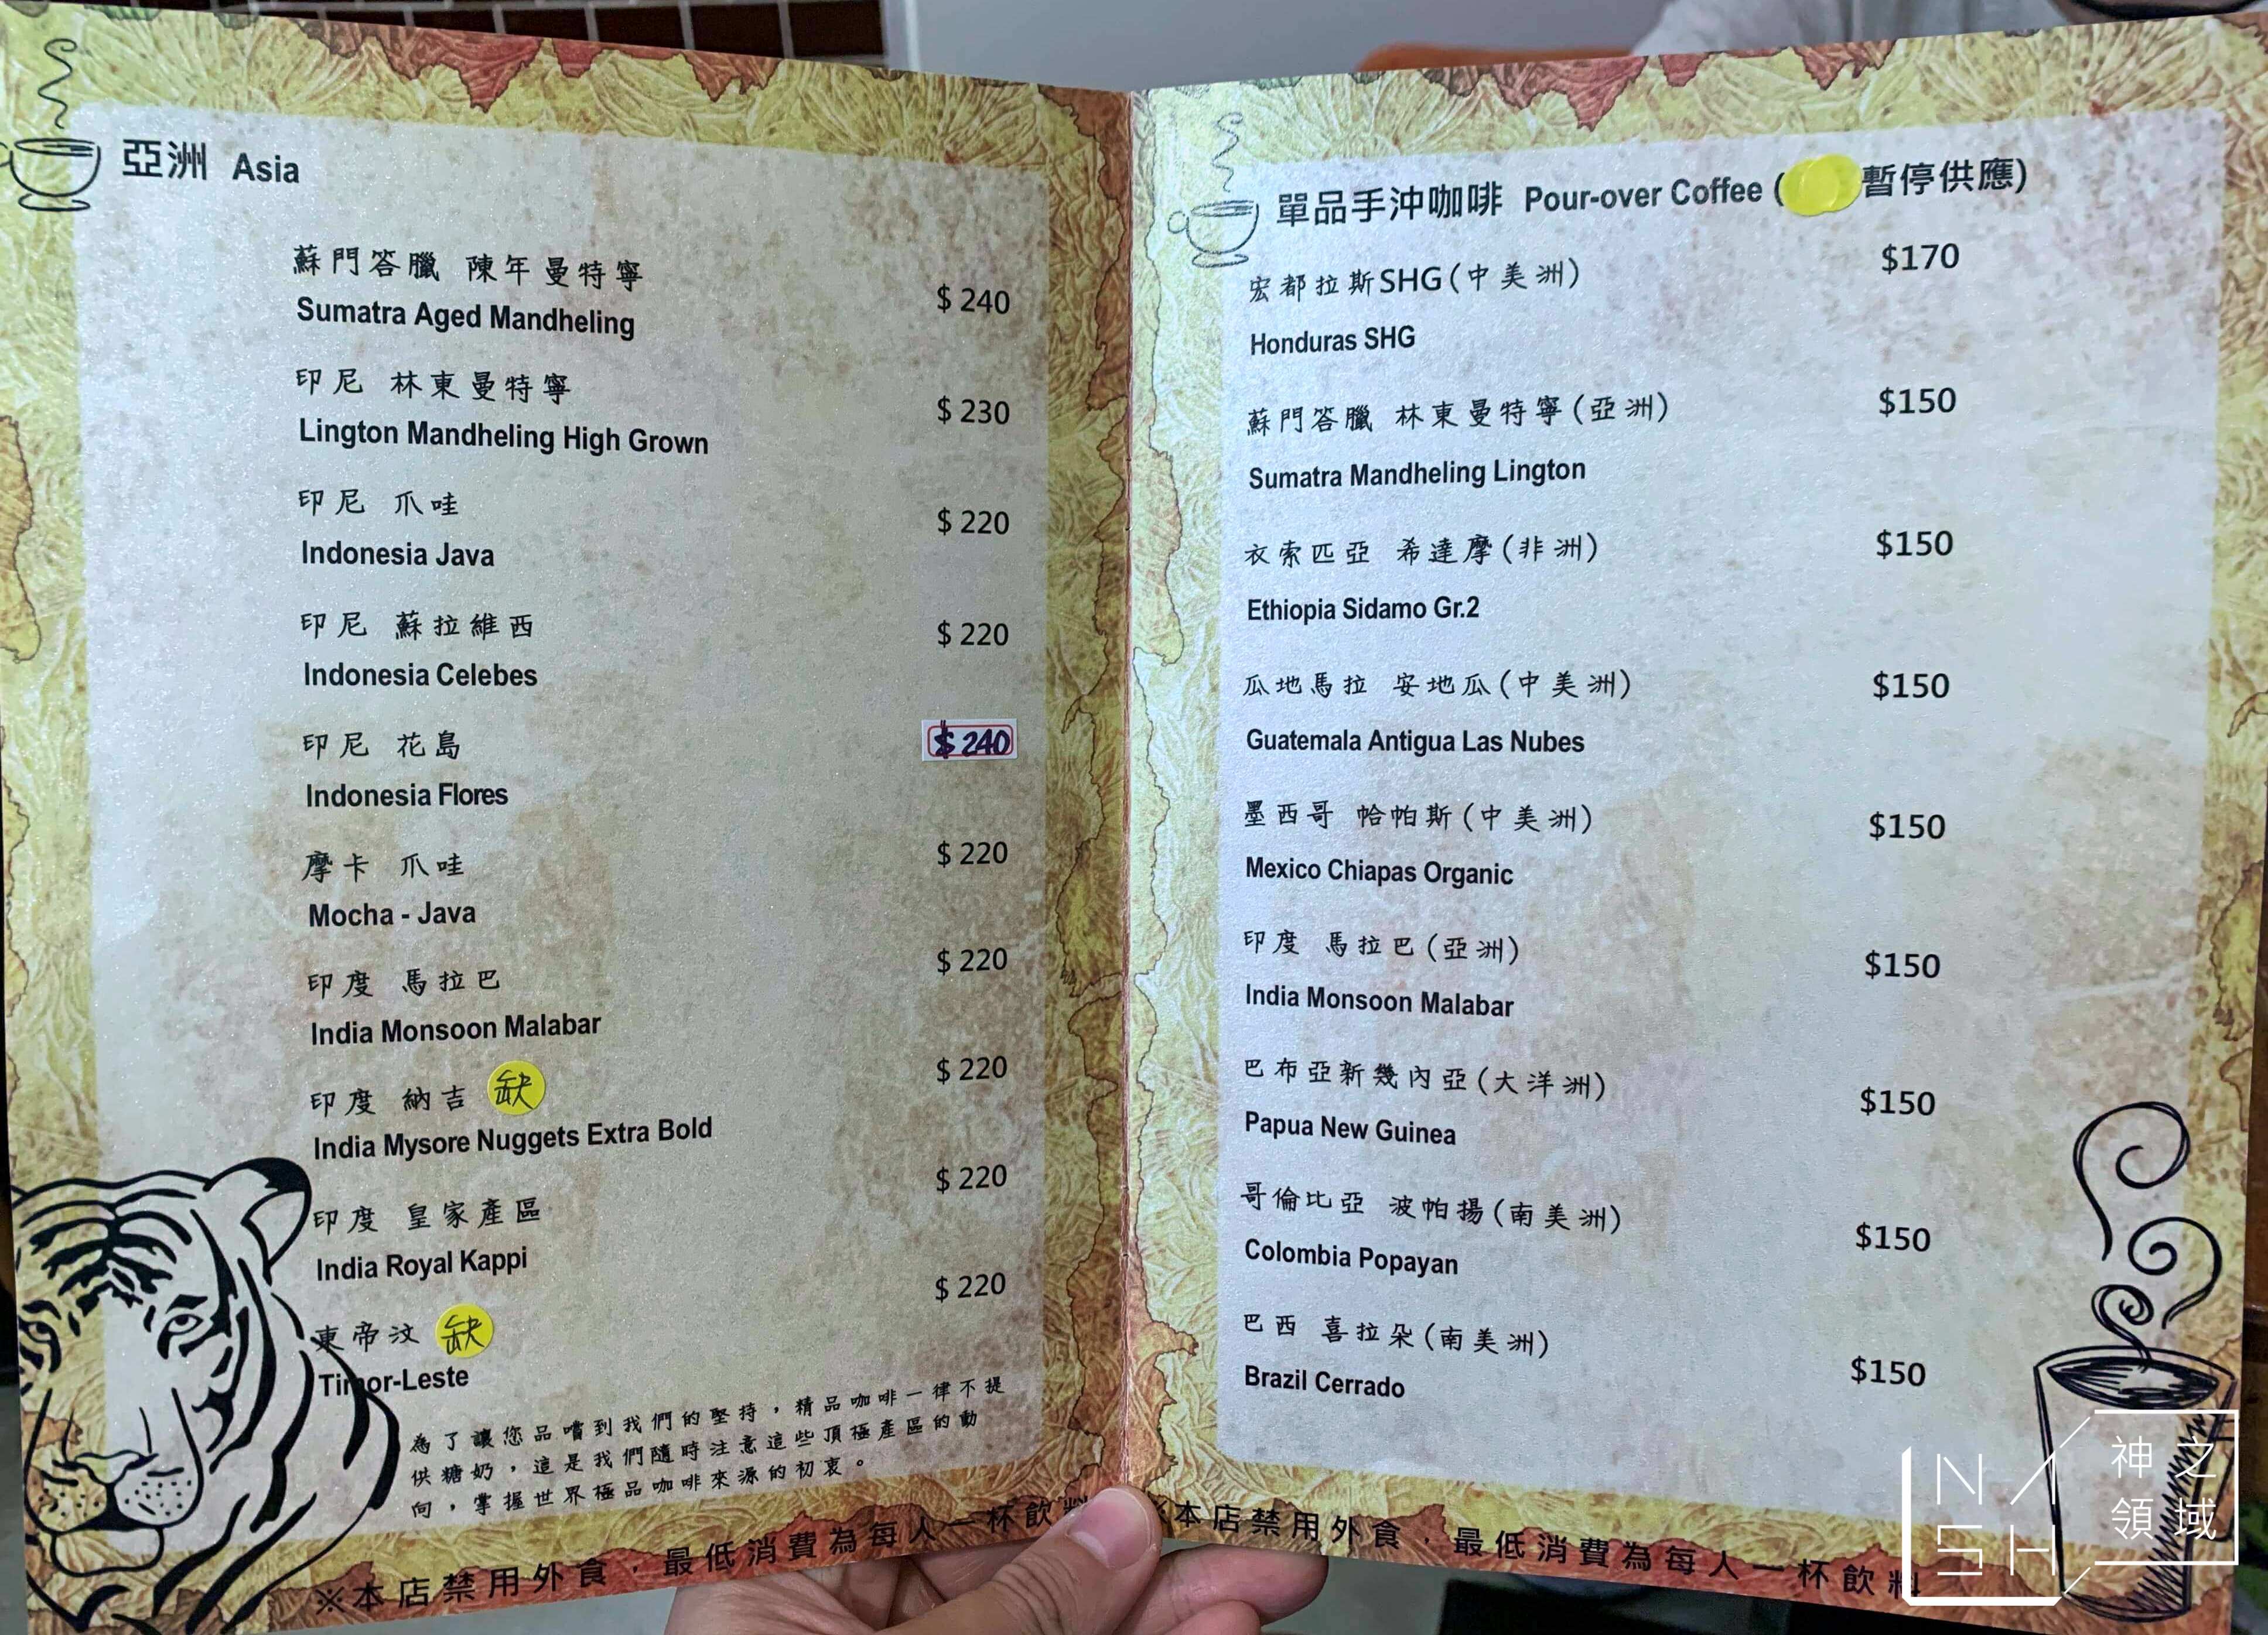 亞洲 Asia
蘇門答臘 陳年曼特寧
Sumatra Aged Mandheling
$ 240
印尼 林東曼特寧
Lington Mandheling High Grown
$ 230
印尼 爪哇
Indonesia Java
$ 220
印尼 蘇拉維西
Indonesia Celebes
$ 220
印尼 花島
Indonesia Flores
$ 240
摩卡 爪哇
Mocha - Java
$ 220
印度 馬拉巴
India Monsoon Malabar
$ 220
印度 納吉 缺
India Mysore Nuggets Extra Bold
$ 220
印度 皇家產區
India Royal Kappi
$ 220
東帝汶 缺
Timor-Leste
$ 220
為了讓您品嚐到我們的堅持，精品咖啡一律不提
供糖奶，這是我們隨時注意這些頂極產區的動
向，掌握世界極品咖啡來源的初衷。
※本店禁用外食，最低消費為每人一杯飲料
單品手沖咖啡 Pour-over Coffee (暫停供應)
宏都拉斯SHG(中美洲)
Honduras SHG
$170
蘇門答臘 林東曼特寧(亞洲)
Sumatra Mandheling Lington
$150
衣索匹亞 希達摩(非洲)
Ethiopia Sidamo Gr.2
$150
瓜地馬拉 安地瓜(中美洲)
Guatemala Antigua Las Nubes
$150
墨西哥 恰帕斯(中美洲)
Mexico Chiapas Organic
$150
印度 馬拉巴(亞洲)
India Monsoon Malabar
$150
巴布亞新幾內亞(大洋洲)
Papua New Guinea
$150
哥倫比亞 波帕揚(南美洲)
Colombia Popayan
$150
巴西 喜拉朵(南美洲)
Brazil Cerrado
$150
※本店禁用外食，最低消費為每人一杯飲料
NASH
神之
領域